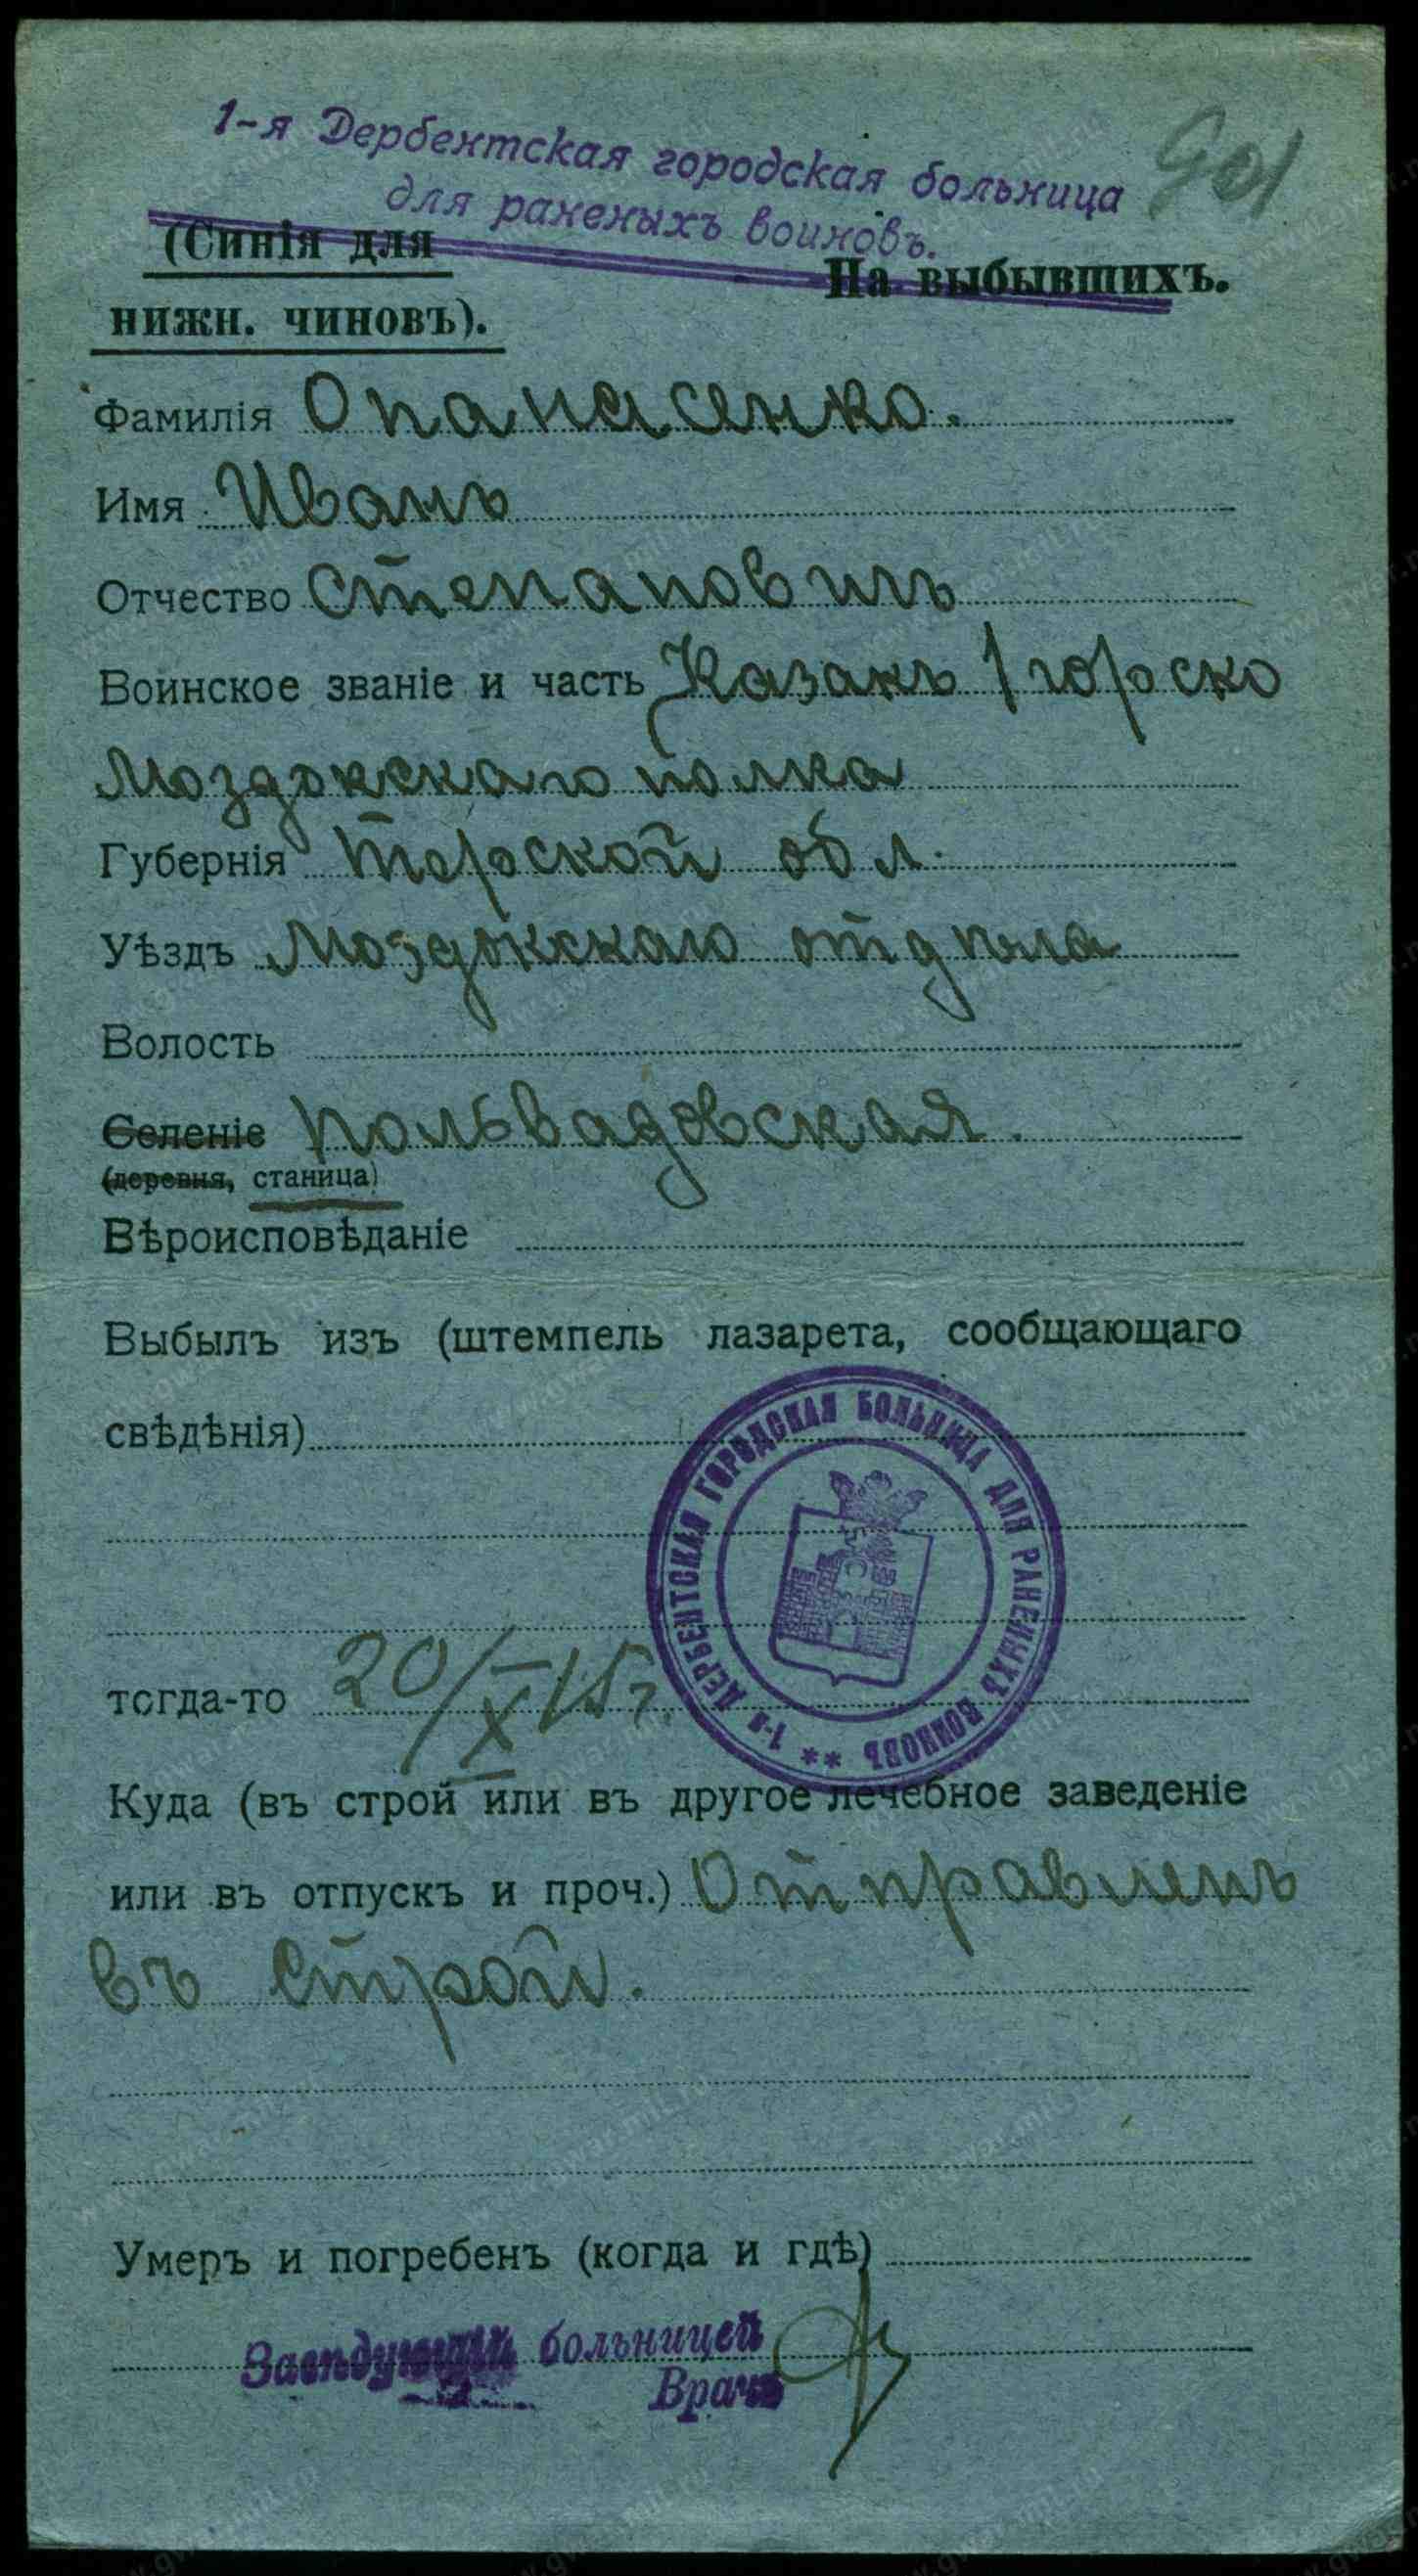 1-я Дербентская городская больница
для раненыхъ воиновъ.
901
(Синія для
На выбывшихъ.
нижн. чиновъ).
Фамилія Опанасенко.
Имя Иванъ
Отчество Степановичъ
Воинское званіе и часть Казакъ 1 горско
Моздокскаго полка
Губернія Терской обл.
Уѣздъ Моздокскаго отдѣла
Волость
Селеніе Польвадовская.
(деревня, станица)
Вѣроисповѣданіе
Выбылъ изъ (штемпель лазарета, сообщающаго
свѣдѣнія)
1-я ДЕРБЕНТСКАЯ ГОРОДСКАЯ БОЛЬНИЦА ДЛЯ РАНЕНЫХЪ ВОИНОВЪ **
тогда-то 20/X 15 г.
Куда (въ строй или въ другое лечебное заведеніе
или въ отпускъ и проч.) Отправленъ
въ строй.
Умеръ и погребенъ (когда и гдѣ)
Завѣдующій больницей
Врачъ
www.gwar.mil.ru